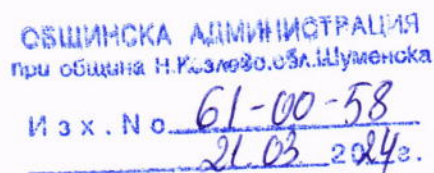 ОБЩИНСКА АДМИНИСТРАЦИЯ
при община Н.Козлево.обл.Шуменска
Изх. No 61-00-58
21.03 2024г.